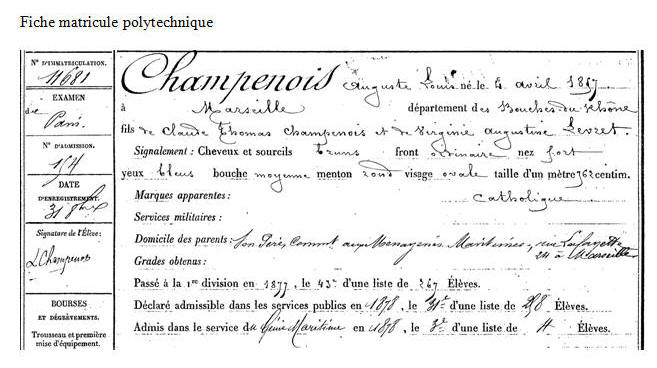 Fiche matricule polytechnique
N° D'IMMATRICULATION.
11681
EXAMEN
de
Paris.
N° D'ADMISSION.
154
DATE
D'ENREGISTREMENT.
31 8bre
Signature de l'Élève:
LChampenois
BOURSES
ET
DÉGRÈVEMENTS.
Trousseau et première
mise d'équipement.
Champenois Auguste Louis né le 4 avril 1857
à Marseille département des Bouches du Rhône
fils de Claude Thomas Champenois et de Virginie Augustine Levret.
Signalement: Cheveux et sourcils bruns front ordinaire nez fort
yeux bleus bouche moyenne menton rond visage ovale taille d'un mètre 762 centim.
Marques apparentes: Catholique
Services militaires:
Domicile des parents: Son Père, Commt aux Messageries Maritimes, rue Lafayette
à Marseille
Grades obtenus:
Passé à la 1re division en 1877, le 43e d'une liste de 267 Élèves.
Déclaré admissible dans les services publics en 1878, le 31e d'une liste de 258 Élèves.
Admis dans le service du Génie Maritime en 1878, le 3e d'une liste de 4 Élèves.